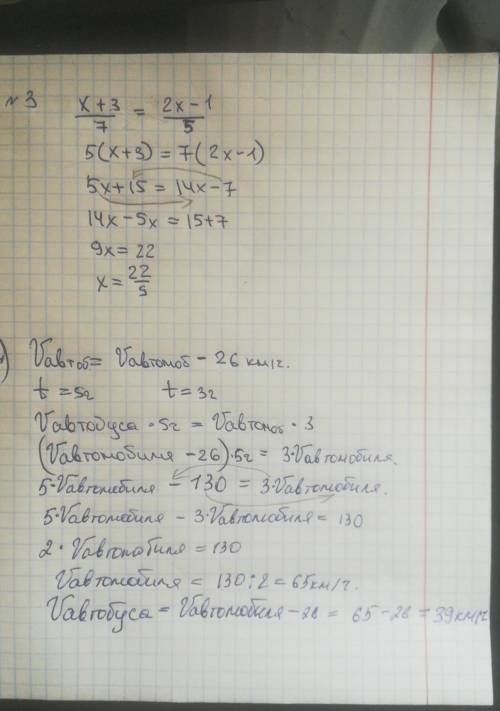 №3
x+3/7 = 2x-1/5
5(x+3) = 7(2x-1)
5x+15 = 14x-7
14x-5x = 15+7
9x = 22
x = 22/9
) Vавтоб = Vавтомоб - 26 км/ч.
t = 5ч t = 3ч
Vавтобуса · 5ч = Vавтомоб · 3
(Vавтомобиля - 26)·5ч = 3·Vавтомобиля.
5·Vавтомобиля - 130 = 3·Vавтомобиля.
5·Vавтомобиля - 3·Vавтомобиля = 130
2·Vавтомобиля = 130
Vавтомобиля = 130:2 = 65км/ч.
Vавтобуса = Vавтомобиля - 26 = 65-26 = 39км/ч